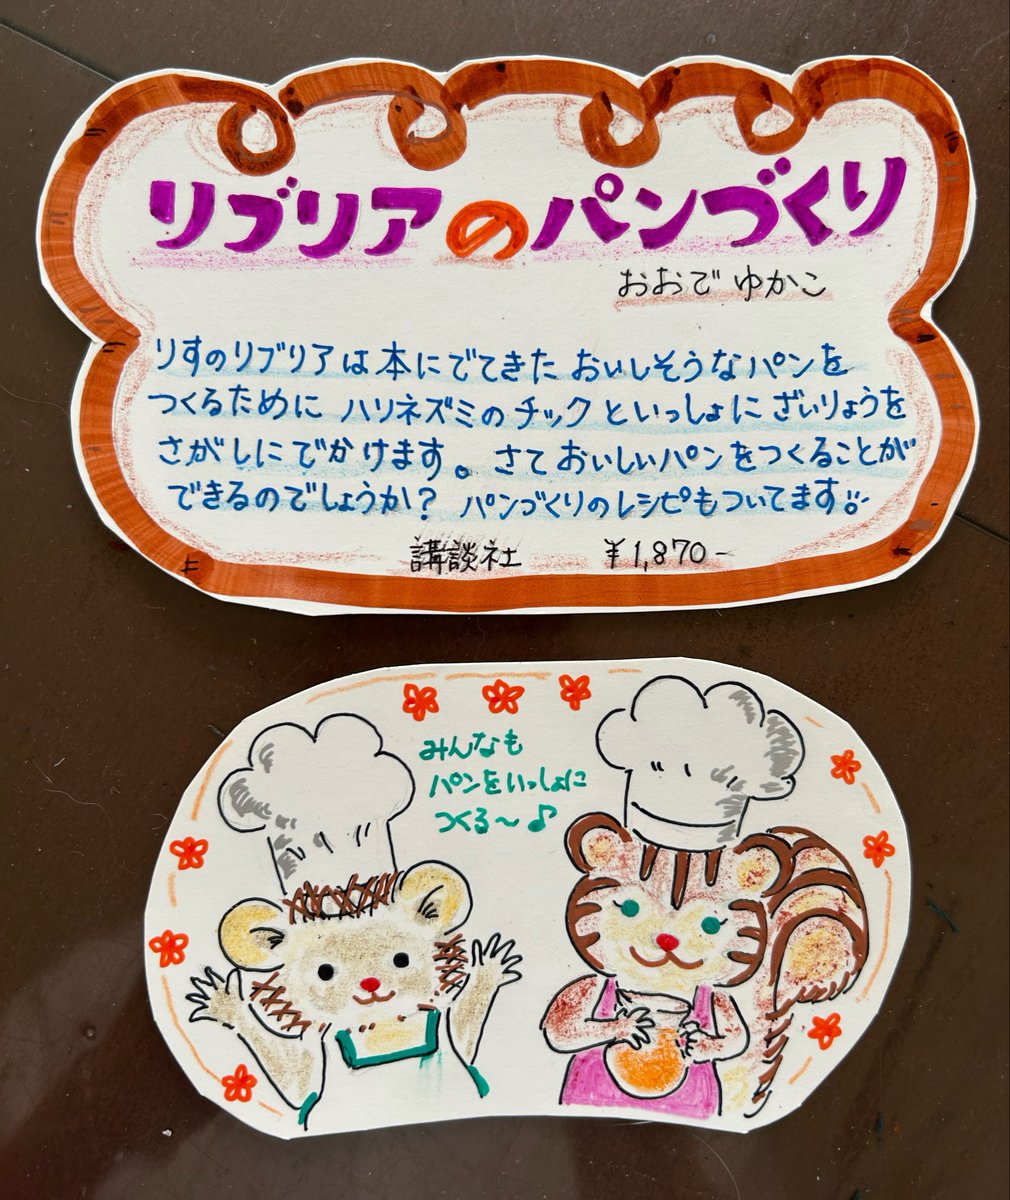 リブリアのパンづくり
おおで ゆかこ
りすのリブリアは本にでてきた おいしそうなパンを
つくるために ハリネズミのチックといっしょに ざいりょうを
さがしにでかけます。さて おいしいパンをつくることが
できるのでしょうか? パンづくりのレシピもついてます
講談社 ¥1,870-
みんなも
パンをいっしょに
つくる〜♪